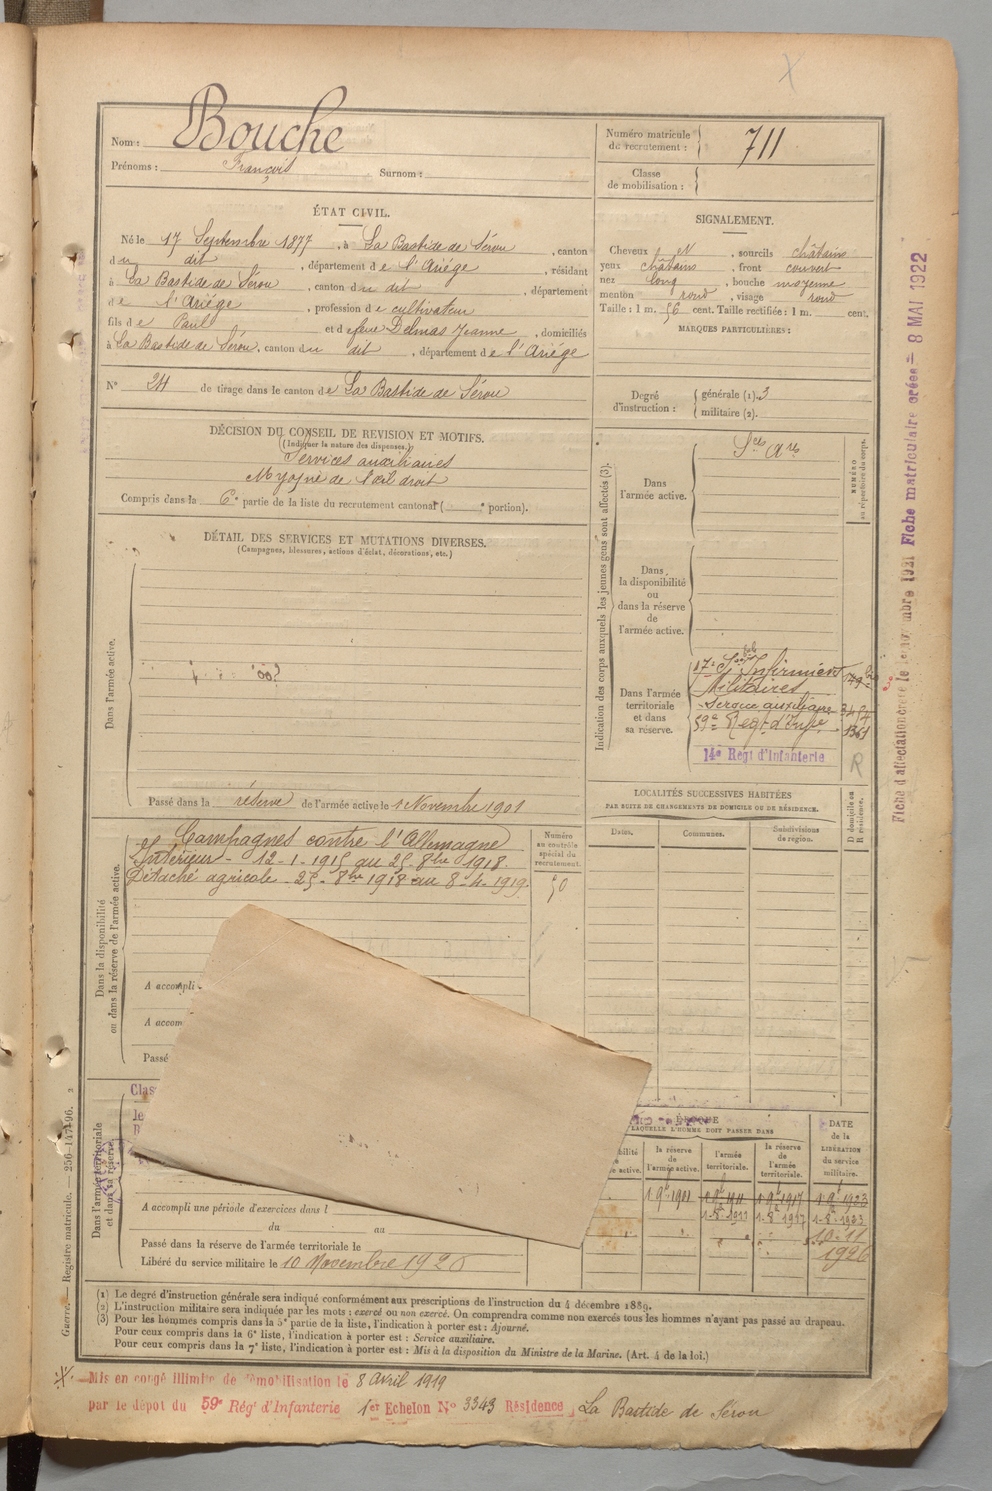 Nom : Bouche
Prénoms : François Surnom :
Numéro matricule du recrutement : 711
Classe de mobilisation :
ÉTAT CIVIL.
Né le 17 Septembre 1877, à La Bastide de Sérou, canton
du dit, département de l'Ariége, résidant
à La Bastide de Sérou, canton du dit, département
de l'Ariége, profession de cultivateur
fils de Paul et de feue Delmas Jeanne, domiciliés
à La Bastide de Sérou, canton du dit, département de l'Ariége
N° 24 de tirage dans le canton de La Bastide de Sérou
SIGNALEMENT.
Cheveux N, sourcils châtains
yeux châtains, front couvert
nez long, bouche moyenne
menton rond, visage rond
Taille : 1 m. 56 cent. Taille rectifiée : 1 m. cent.
MARQUES PARTICULIÈRES :
Degré d'instruction : générale (1). 3
militaire (2).
DÉCISION DU CONSEIL DE REVISION ET MOTIFS.
(Indiquer la nature des dispenses.)
Services auxiliaires
Myopie de l'œil droit
Compris dans la 6e partie de la liste du recrutement cantonal ( e portion).
DÉTAIL DES SERVICES ET MUTATIONS DIVERSES.
(Campagnes, blessures, actions d'éclat, décorations, etc.)
Dans l'armée active.
Passé dans la réserve de l'armée active le 1 Novembre 1901
Indication des corps auxquels les jeunes gens sont affectés (3).
NUMÉRO au répertoire du corps.
Dans l'armée active.
Sces Ares
Dans la disponibilité ou dans la réserve de l'armée active.
Dans l'armée territoriale et dans sa réserve.
17e Son Infirmiers
Militaires
Service auxiliaire
59e Regt d'Infie
14e Régt d'Infanterie
R
Dans la disponibilité ou dans la réserve de l'armée active.
Campagnes contre l'Allemagne
Intérieur - 12-1-1915 au 25-8bre 1918.
Détaché agricole - 25-8bre 1918 au 8-4-1919.
Numéro au contrôle spécial du recrutement.
50
A accompli
A accom
Passé
LOCALITÉS SUCCESSIVES HABITÉES
PAR SUITE DE CHANGEMENTS DE DOMICILE OU DE RÉSIDENCE.
Dates. Communes. Subdivisions de région.
D domicile ou R résidence.
Dans l'armée territoriale et dans sa réserve.
Clas
le
A accompli une période d'exercices dans l
du au
Passé dans la réserve de l'armée territoriale le
Libéré du service militaire le 10 Novembre 1926
ÉPOQUE
LAQUELLE L'HOMME DOIT PASSER DANS
la réserve de l'armée active. l'armée territoriale. la réserve de l'armée territoriale.
DATE de la LIBÉRATION du service militaire.
1-9e 1901 1-9e 1911 1-9e 1917 1-9e 1923
1-8e 1911 1-8e 1917 1-8e 1923
10-11
1926
(1) Le degré d'instruction générale sera indiqué conformément aux prescriptions de l'instruction du 4 décembre 1889.
(2) L'instruction militaire sera indiquée par les mots : exercé ou non exercé. On comprendra comme non exercés tous les hommes n'ayant pas passé au drapeau.
(3) Pour les hommes compris dans la 5e partie de la liste, l'indication à porter est : Ajourné.
Pour ceux compris dans la 6e liste, l'indication à porter est : Service auxiliaire.
Pour ceux compris dans la 7e liste, l'indication à porter est : Mis à la disposition du Ministre de la Marine. (Art. 4 de la loi.)
Mis en congé illimité de démobilisation le 8 avril 1919
par le dépot du 59e Régt d'Infanterie 1er Echelon N° 3343 Résidence La Bastide de Sérou
Guerre. — Registre matricule. — 256-147-96.
Fiche matriculaire créée — 8 MAI 1922